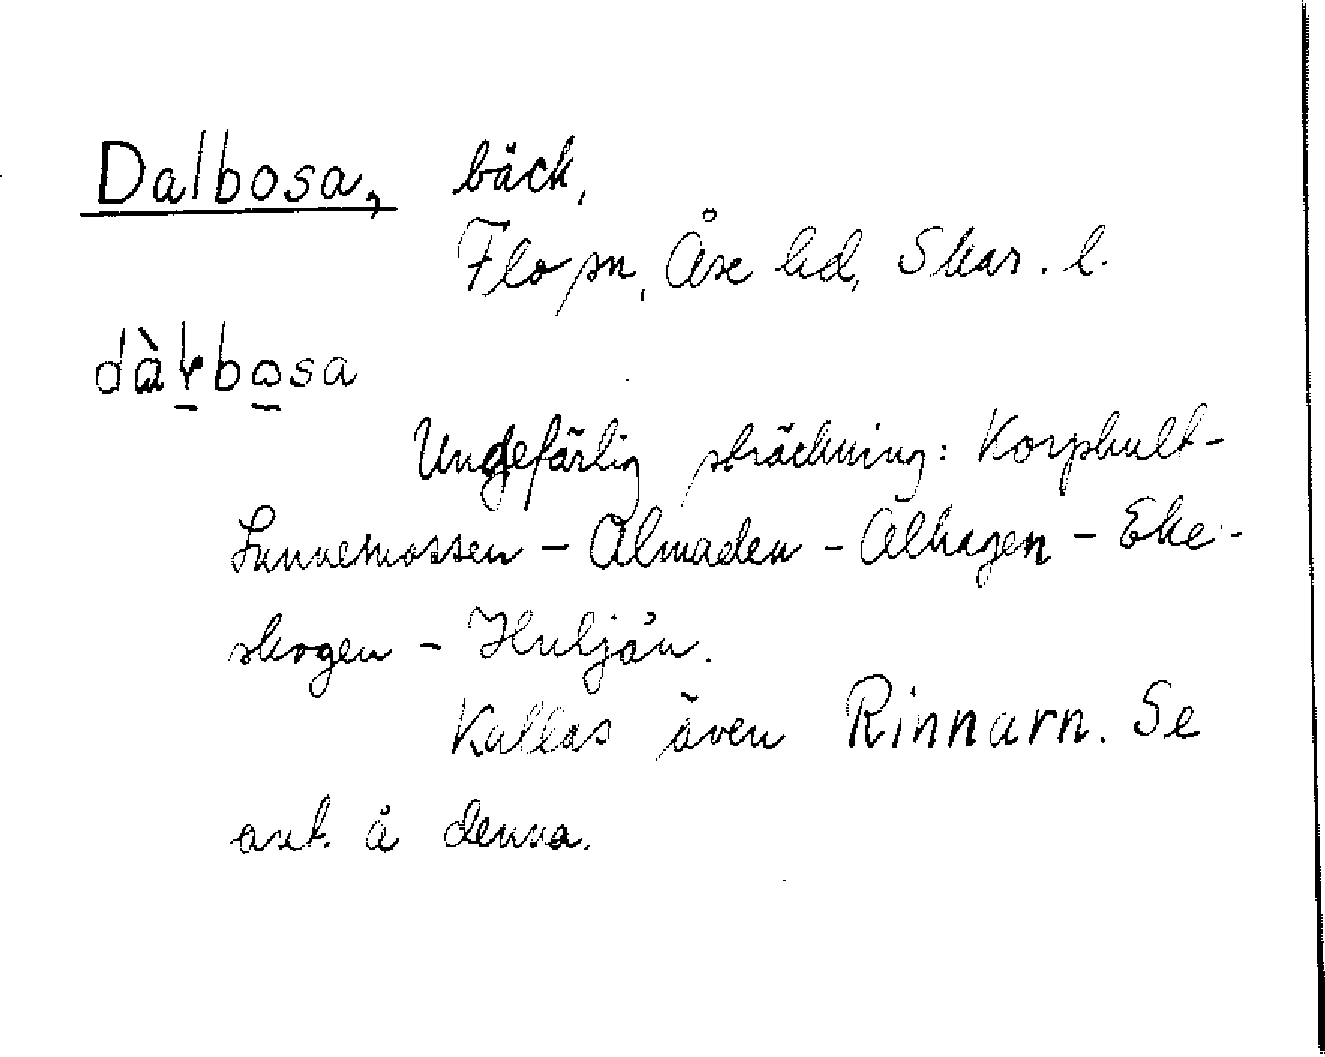 Dalbosa, bäck,
Flo sn, Åse hd, Skar. l.
dàɽbosa
Ungefärlig sträckning: Korphult-
Lunnemossen - Almaden - Älhagen - Eke-
skogen - Huljån.
Kallas även Rinnarn. Se
ant. å denna.